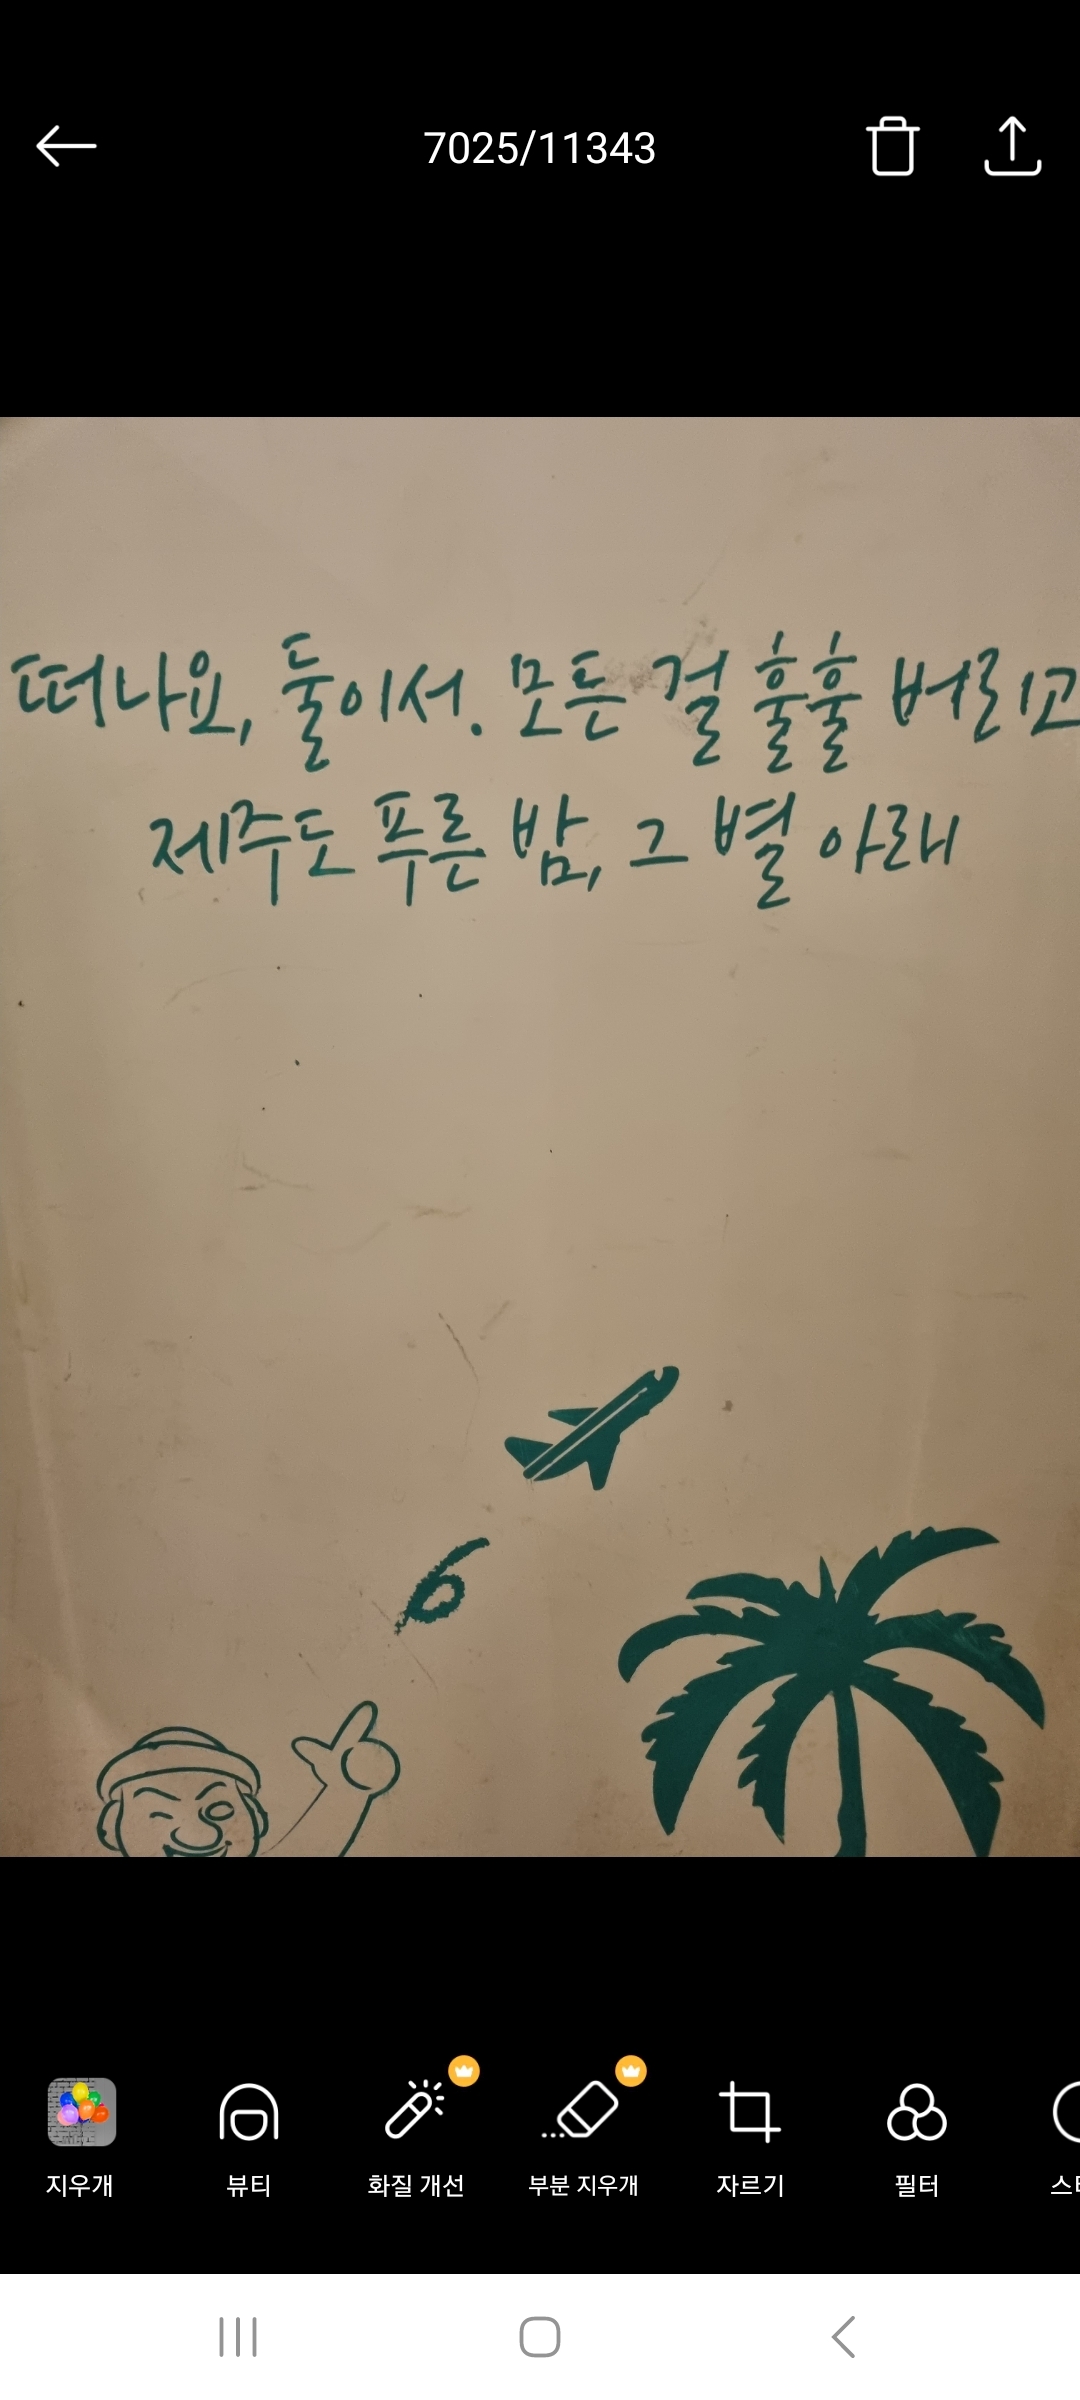 7025/11343
떠나요, 둘이서. 모든 걸 훌훌 버리고
제주도 푸른 밤, 그 별 아래
지우개 뷰티 화질 개선 부분 지우개 자르기 필터